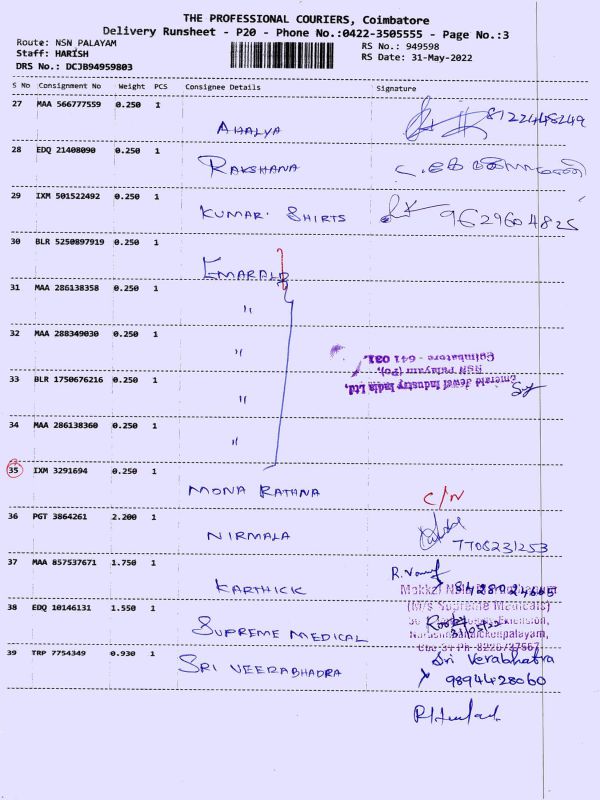 THE PROFESSIONAL COURIERS, Coimbatore
Delivery Runsheet - P20 - Phone No.:0422-3505555 - Page No.:3
Route: NSN PALAYAM
Staff: HARISH
DRS No.: DCJB94959803
RS No.: 949598
RS Date: 31-May-2022
S No Consignment No Weight PCS Consignee Details Signature
27 MAA 566777559 0.250 1
AHALYA 8122448249
28 EDQ 21408090 0.250 1
RAKSHANA
29 IXM 501522492 0.250 1
KUMAR. SHIRTS 9629604825
30 BLR 5250897919 0.250 1
EMARALD
31 MAA 286138358 0.250 1
"
32 MAA 288349030 0.250 1
"
33 BLR 1750676216 0.250 1
"
Emerald Jewel Industry India Ltd,
NSN Palayam (Po),
Coimbatore - 641 031.
34 MAA 286138360 0.250 1
"
35 IXM 3291694 0.250 1
MONA RATHNA C/N
36 PGT 3864261 2.200 1
NIRMALA 7708231253
37 MAA 857537671 1.750 1
KARTHICK
38 EDQ 10146131 1.550 1
(M/s Supreme Medicals)
SUPREME MEDICAL
39 TRP 7754349 0.930 1
SRI VEERABHADRA
Sri Verabhatra
9894428060